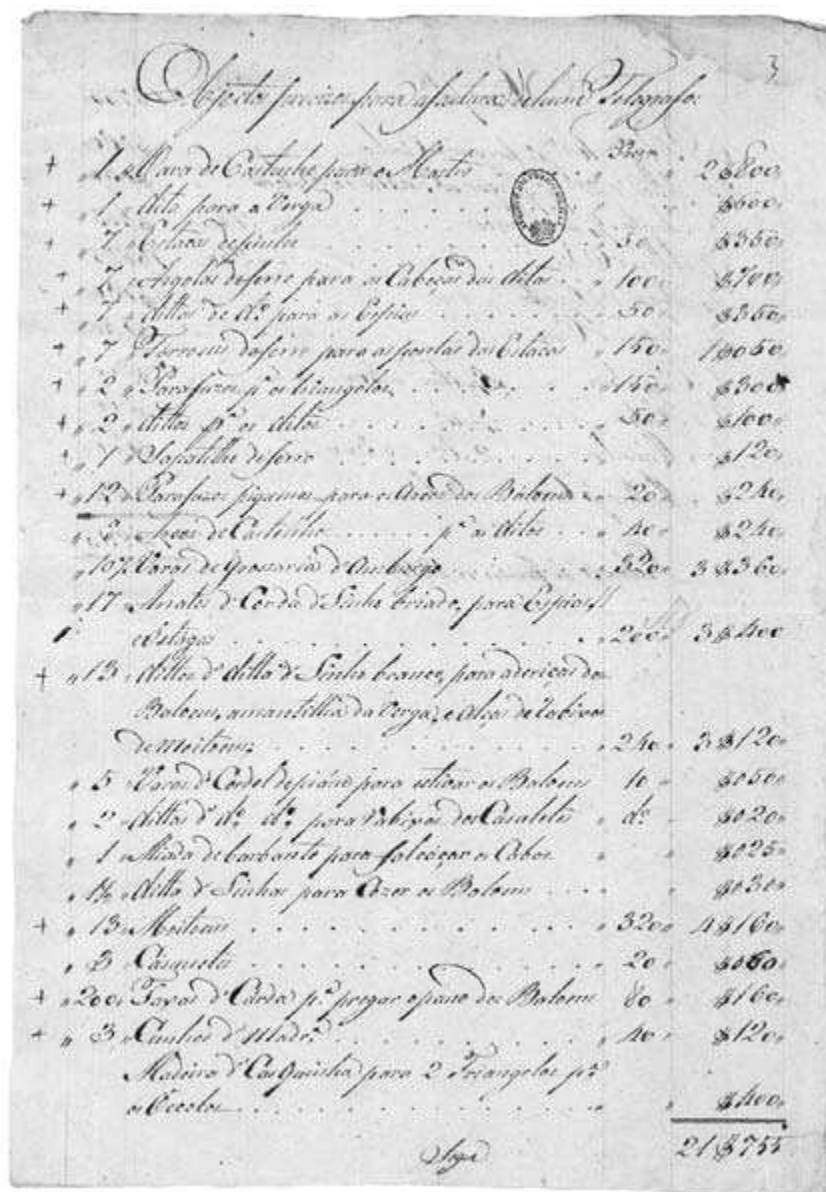 3
Objectos precizos para a factura de hum Telegrafo
Reis
+ 1 Vara de Castanho para o Mastro 2$800
+ 1 dita para a Verga $600
+ 7 Estacas de pinho 50 $350
+ 7 Argolas de ferro para as Cabeças das ditas 100 $700
+ 7 dittas de do para as Espias 50 $350
+ 7 de ferro para as pontas das Estacas 150 1$050
+ 2 Parafuzos pa os triangolos 150 $300
+ 2 dittos pa os ditos 50 $100
+ 1 Sapatilho de ferro $120
+ 12 Parafuzos piquenos para os Arcos dos Baloens 20 $240
Arcos de Castanho pa os ditos 40 $240
10½ Varas de Grossaria 320 3$360
17 Arrates de Corda de Linho para Espias
e Estágos 200 3$400
+ 13 dittos de ditta de Linho branco, para adericas dos
Baloens, amantilha da Verga, e alças de Cabiros
de Moitoens 240 3$120
5 Varas de Cordel de para estivar os Baloens 10 $050
2 dittas de do do para do $020
1 Miada de barbante para falcaçar os Cabos $025
ditta de Linhas para Cozer os Baloens $030
+ 13 Moitoens 320 4$160
3 20 $060
+ 200 Taxas de Carda pa pregar o pano dos Baloens 80 $160
+ 3 Cunhos de Madra 40 $120
Madeira de Casquinha para 2 Triangolos pa
os $400
21$755
Segue